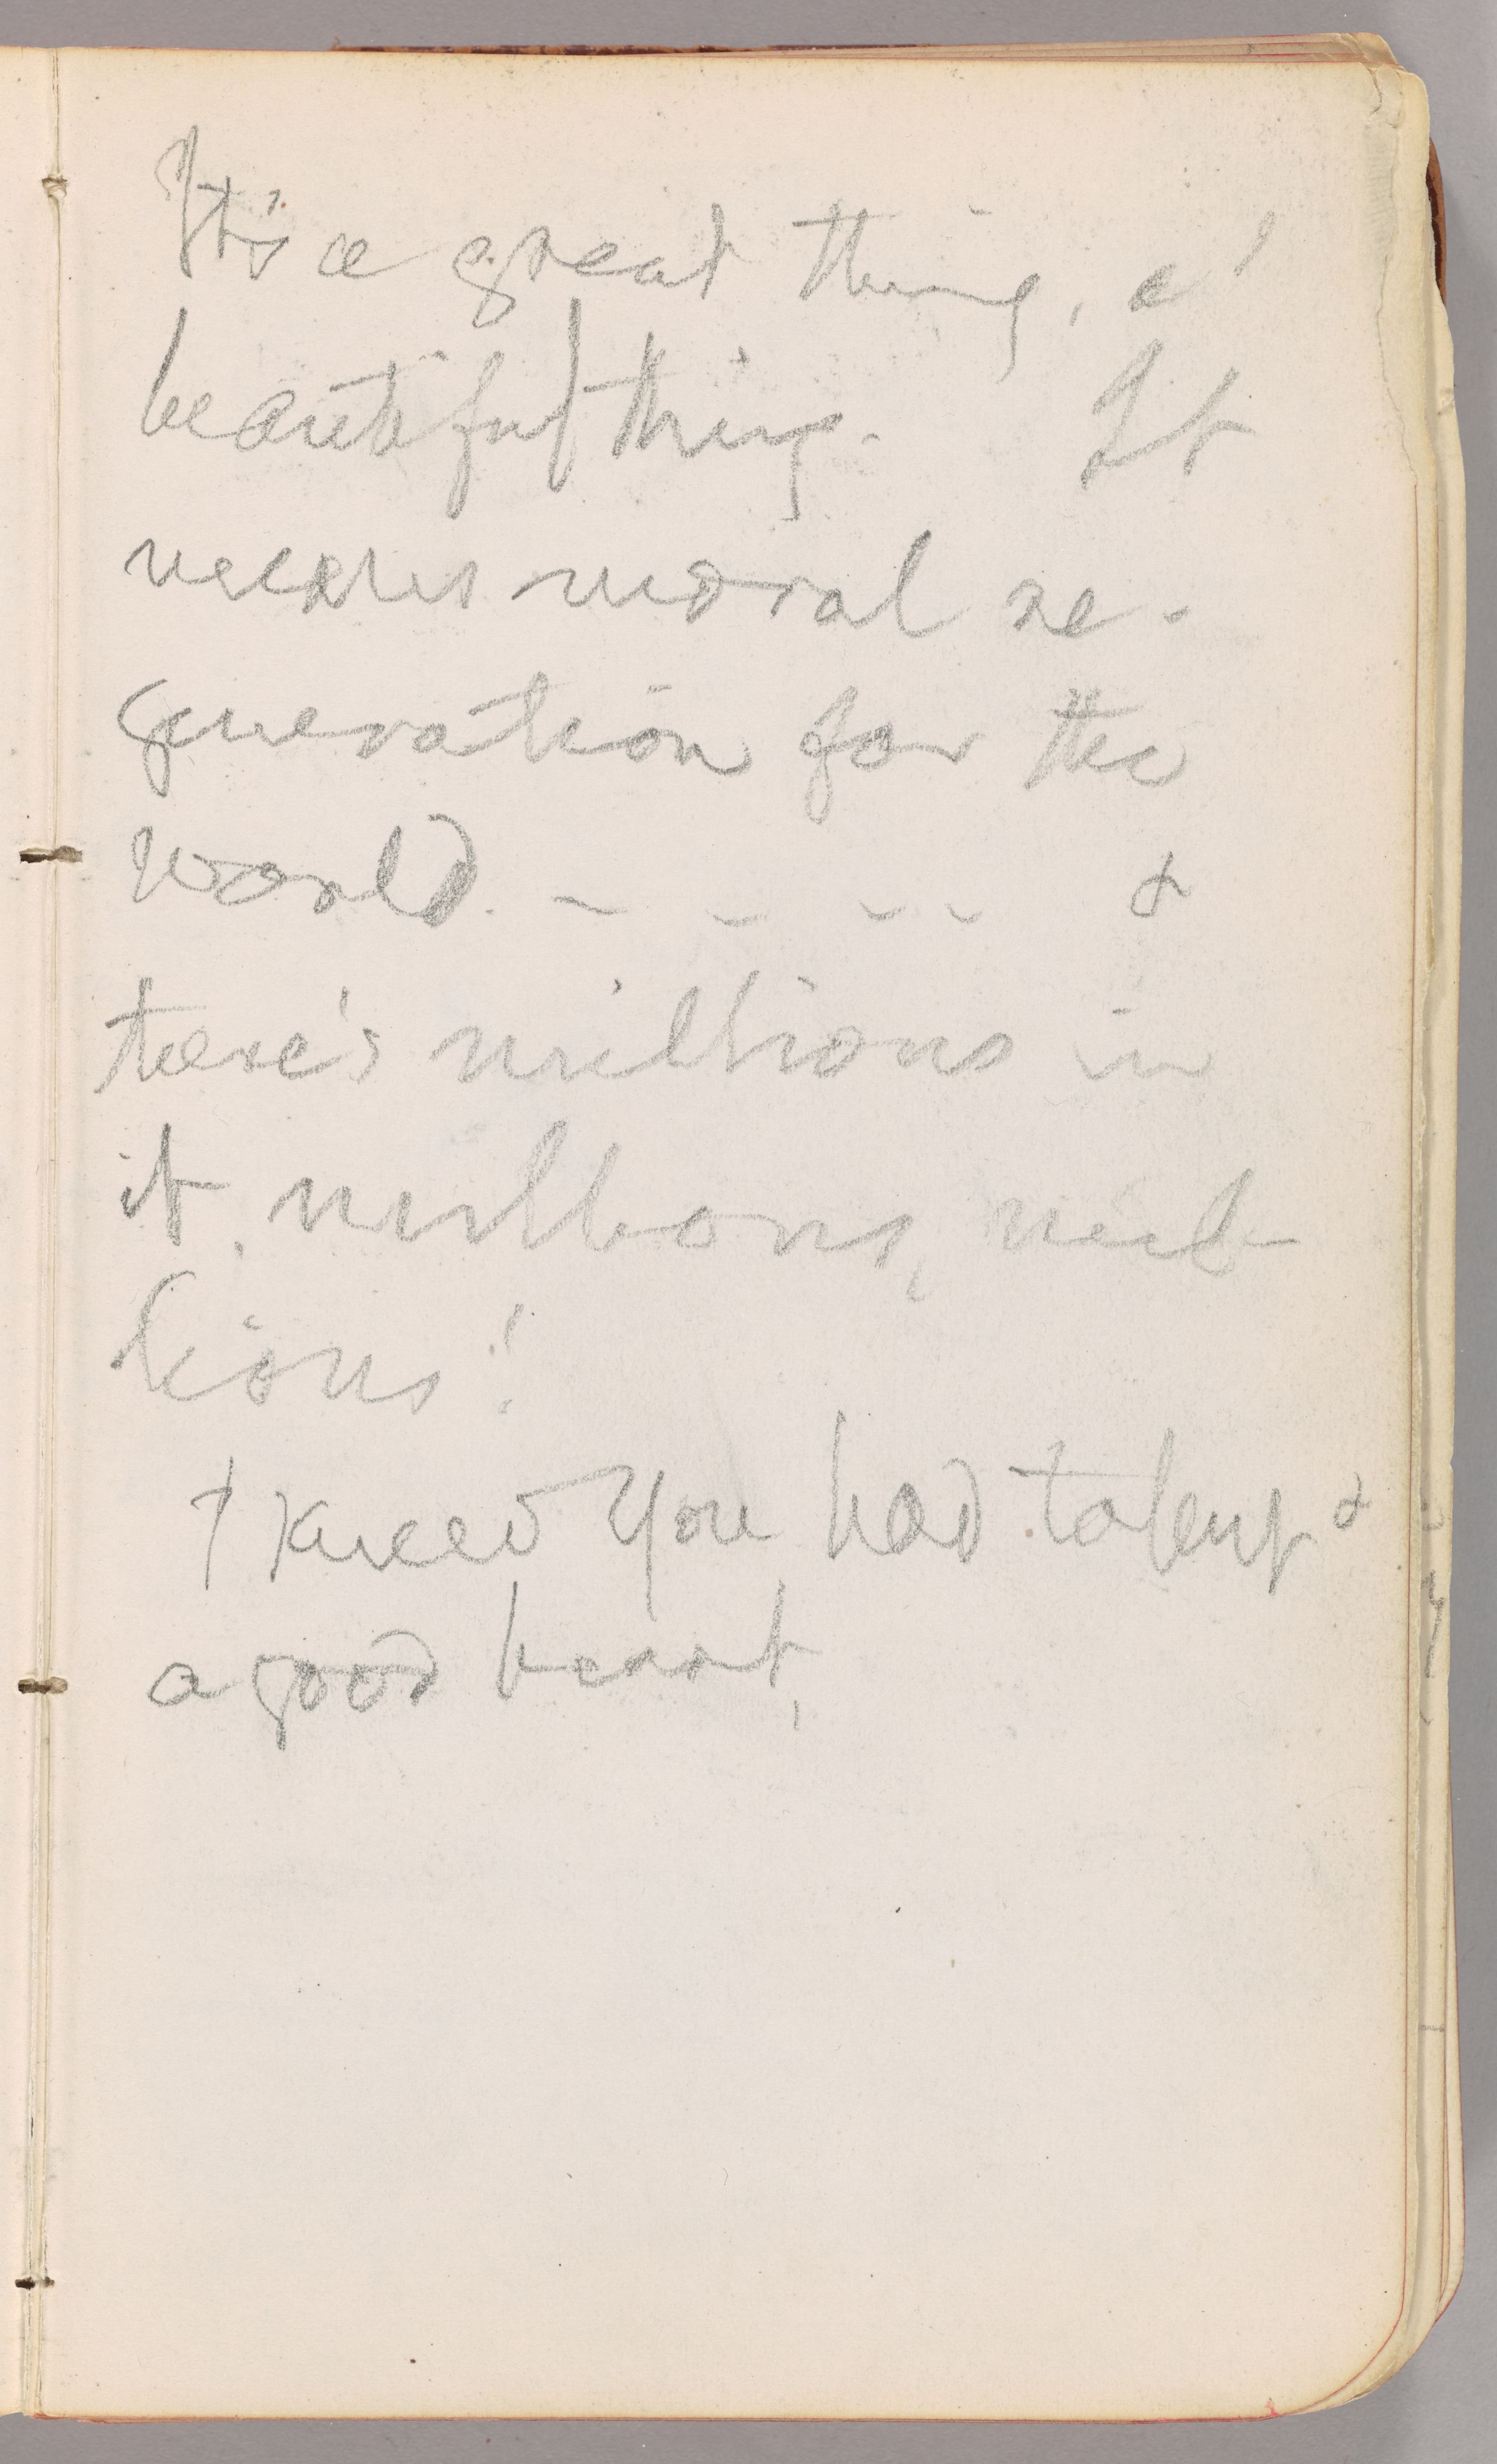 It's a great thing, a
beautiful thing. It
means moral re-
generation for the
world. - - - - &
there's millions in
it, millions, mil-
lions!
I knew you had talent &
a good heart,